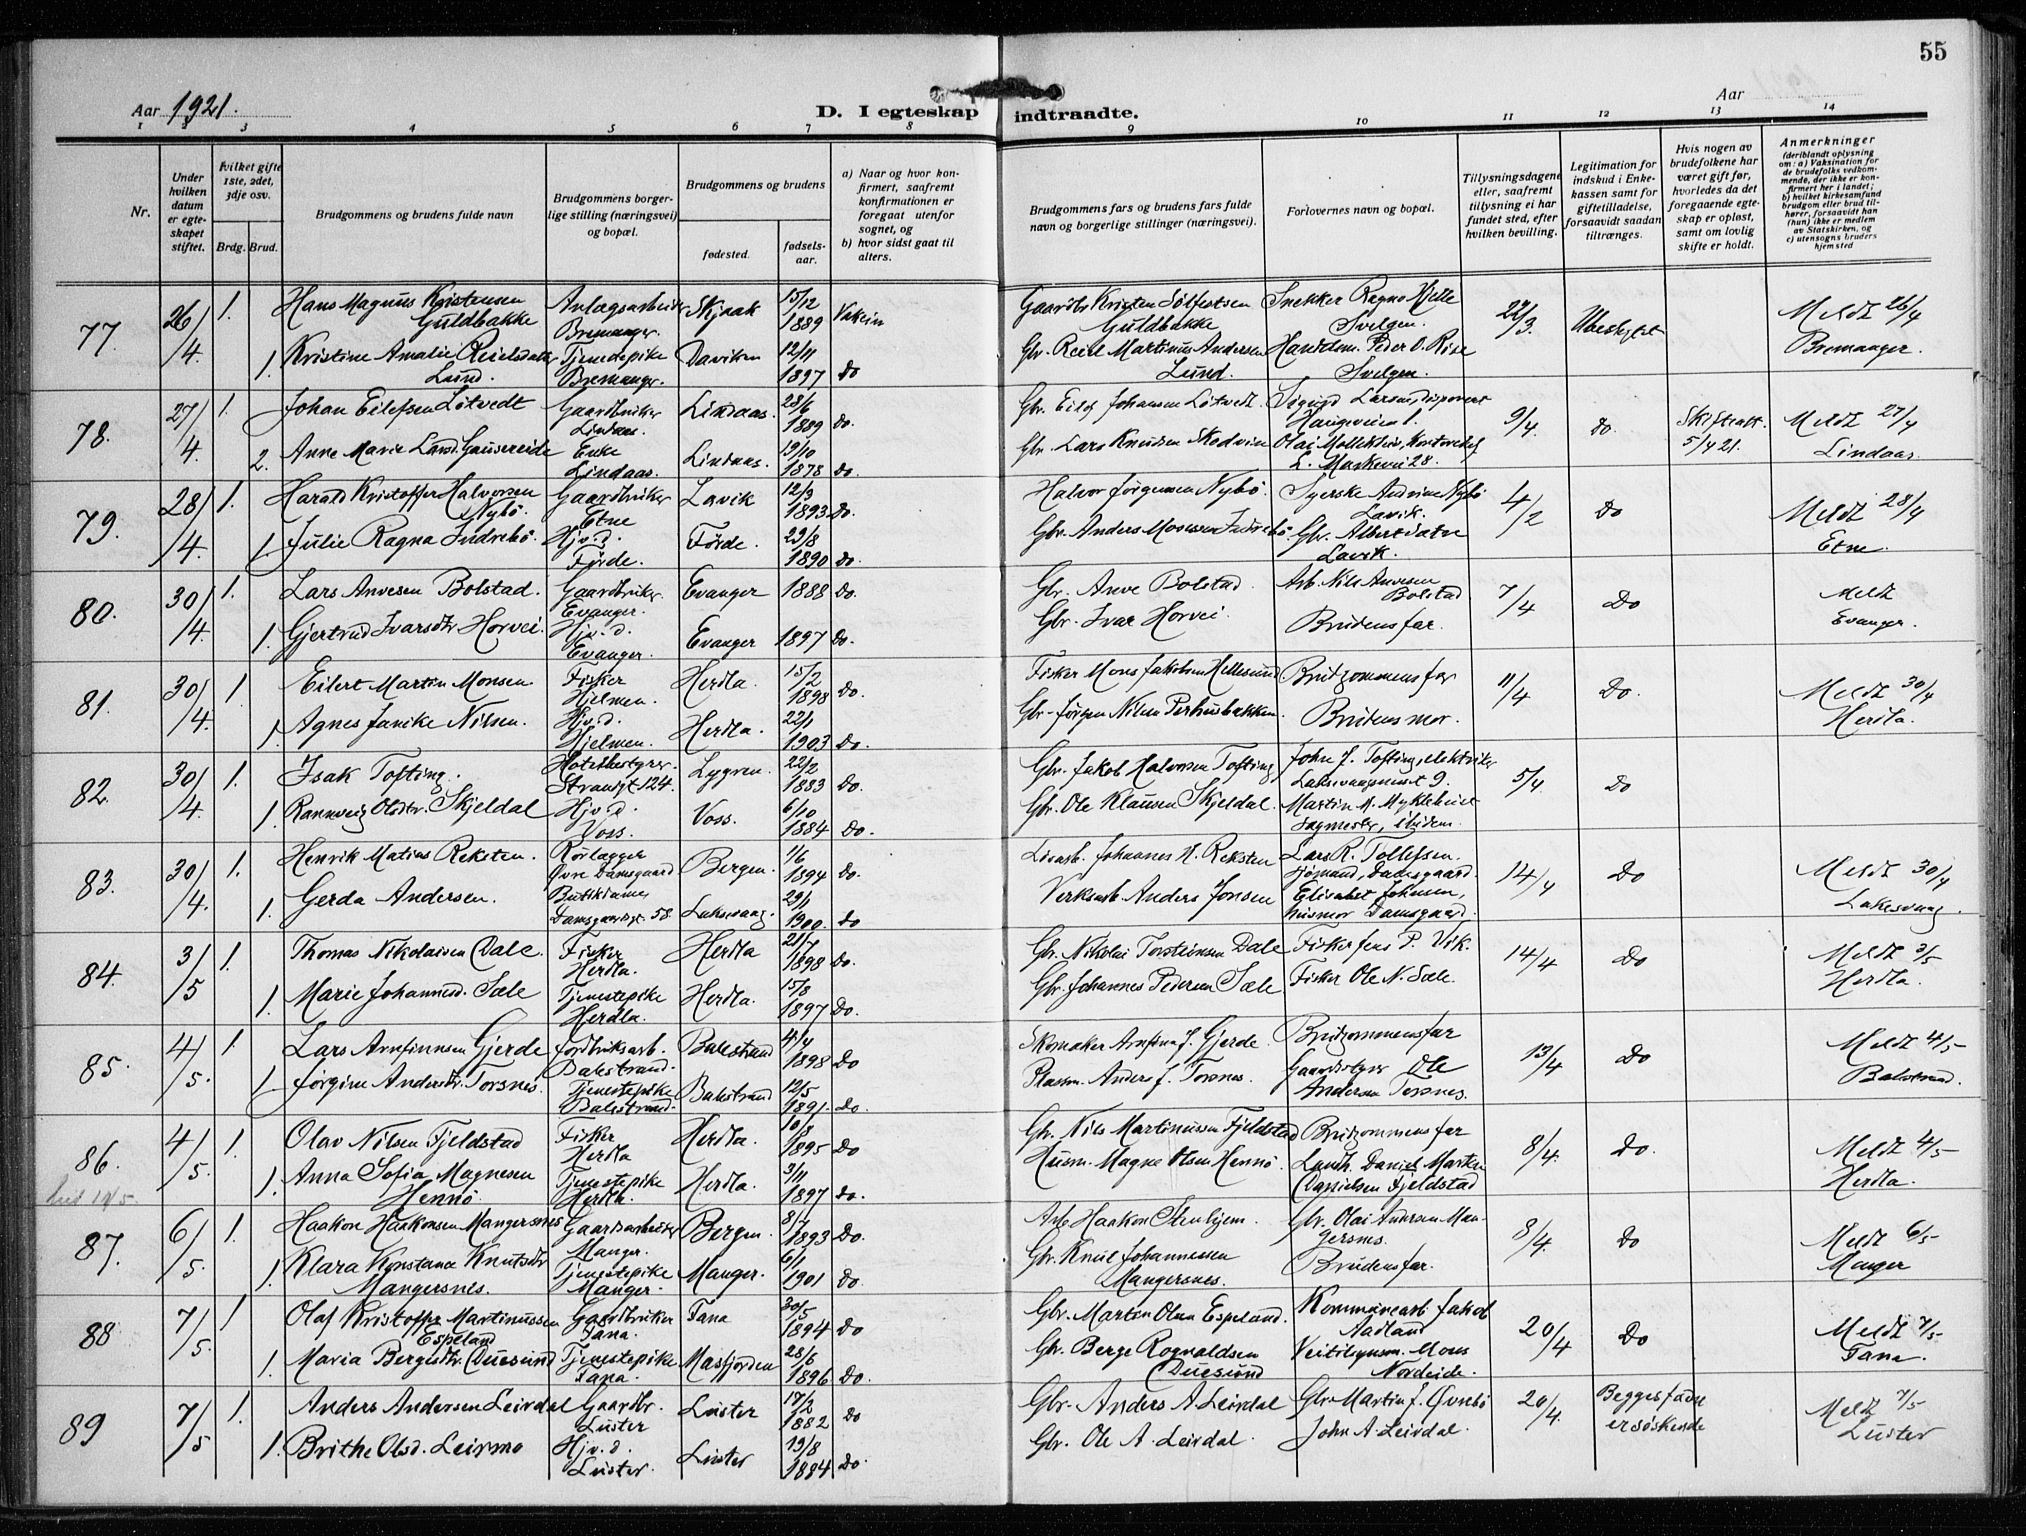 55
Aar 1921.
D. I egteskap indtraadte.
Aar
1 2 3 4 5 6 7 8 9 10 11 12 13 14
Nr.
Under hvilken datum er egteskapet stiftet.
Hvilket gifte 1ste, 2det, 3dje osv.
Brdg. Brud.
Brudgommens og brudens fulde navn
Brudgommens borgerlige stilling (næringsvei) og bopæl.
Brudgommens og brudens
fødested.
fødselsaar.
a) Naar og hvor konfirmert, saafremt konfirmationen er foregaat utenfor sognet, og
b) hvor sidst gaat til alters.
Brudgommens fars og brudens fars fulde navn og borgerlige stillinger (næringsvei).
Forlovernes navn og bopæl.
Tillysningsdagene eller, saafremt tillysning ei har fundet sted, efter hvilken bevilling.
Legitimation for indskud i Enkekassen samt for giftetilladelse, forsaavidt saadan tiltrænges.
Hvis nogen av brudefolkene har været gift før, hvorledes da det foregaaende egteskap er opløst, samt om lovlig skifte er holdt.
Anmerkninger
(deriblandt oplysning om: a) Vaksination for de brudefolks vedkommende, der ikke er konfirmert her i landet; b) hvilket kirkesamfund brudgom eller brud tilhører, forsaavidt han (hun) ikke er medlem av Statskirken, og c) utensogns bruders hjemsted
77. 26/4. 1. Hans Magnus Kristensen Guldbakke Anlagsarbeider Bremanger. Skjaak 15/12 1889 Vaksin Gaardbr Kristen Sølfestsen Guldbakke Snekker Ragno Hjelle Svelgen. 22/3. Ubeskyttet Meldt 26/4 Bremanger.
1. Kristine Amalie Reielsdatr Lund. Tjenestepike Bremanger. Daviken 12/11 1897 Do Gbr. Reiel Martinus Andersen Lund. Peder O. Rise Svelgen.
78. 27/4. 1. Johan Eilefsen Løtvedt Gaardbruker Lindaas. Lindaas. 1889 Do. Gbr. Eilef Johansen Løtvedt. Sigurd Larsen, disponent Haugeveien 1. 9/4. Do. Skifteatt. 5/4 21. Meldt 27/4 Lindaas.
2. Anne Marie Larsd. Gausereide Enke Lindaas. Lindaas. 19/10 1878 Do. Gbr. Lars Knudsen Skodvin Olai Mollekleiv, L. Markevei 28.
79. 28/4. 1. Harald Kristoffer Halvorsen Nybø. Gaardbruker Etne Lavik 12/3 1893 Do. Halvor Jørgensen Nybø. Syerske Andrine Nybø Lavik. 4/2 Do Meldt 28/4 Etne.
1. Julie Ragna Indrebø. Hjv.d. Førde Førde. 23/8 1890 Do. Gbr. Anders Mosessen Indrebø. Gbr. Albert Lavik.
80. 30/4. 1. Lars Anvesen Bolstad. Gaardbruker. Evanger. Evanger 1888 Do. Gbr. Anve Bolstad. Arb. Nils Anvesen Bolstad 7/4 Do Meldt Evanger.
1. Gjertrud Ivarsdtr Horvei. Hjv.d. Evanger. Evanger 1897 Do. Gbr. Ivar Horvei. Brudens far.
81. 30/4. 1 Eilert Martin Monsen. Fisker Hjelmen. Herdla. 15/2 1898 Do. Fisker Mons Jakobsen Hellesund Brudgommens far 11/4 Do. Meldt 30/4 Herdla.
1. Agnes Janike Nilsen. Hjv.d. Hjelmen. Herdla. 22/1 1903 Do. Gbr. Jørgen Nilsen Perhusbakken. Brudens mor.
82. 30/4. 1. Isak Tofting. Hotelbestyrer. Strandgt 124. Lygren. 22/2 1883 Do. Gbr. Jakob Halvorsen Tofting John J. Tofting, elektriker Laksevaagneset 9. 5/4. Do
1. Rannveig Olsdtr. Skjeldal Hjv.d. Voss. Voss. 6/10 1884 Do. Gbr. Ole Klausen Skjeldal. Martin M. Myklebust Sagmester, ibidem.
83. 30/4. 1. Henrik Matias Reksten. Rørlægger Øvre Damsgaard Bergen. 1/6 1894 Do. Løsarb. Johannes H. Reksten Lars R. Tollefsen. Sjømand, Damsgaard. 14/4 Do Meldt 30/4 Laksevaag.
1. Gerda Andersen. Butikdame Damsgaardsgt. 58. Laksevaag. 29/1 1900. Do Verksarb. Anders Jonsen Elisabet Johnsen, husmor Damsgaard.
84. 3/5 1. Thomas Nikolaisen Dale. Fisker Herdla. Herdla 21/7 1898 Do. Gbr. Nikolai Torsteinsen Dale Fisker Jens P. Vik. 14/4 Do Meldt 3/5 Herdla.
1. Marie Johannesd. Sæle Tjenestepike Herdla. Herdla. 15/8 1897 Do. Gbr. Johannes Pedersen Sæle Fisker Ole N. Sæle.
85. 4/5. 1. Lars Arnfinnsen Gjerde Balestrand. Balestrand 4/4 1898 Do Skomaker Arnfinn J. Gjerde. Brudgommens far 13/4 Do Meldt 4/5 Balestrand.
1 Jørgine Andersdtr. Torsnes. Tjenestepike Balestrand. Balestrand 12/5 1891. Do. Plassm. Anders J. Torsnes. Gaardbestyrer Ole Andersen Torsnes.
86. 4/5. 1. Olav Nilsen Fjeldstad Fisker Herdla Herdla. 10/8 1895 Do Gbr. Nils Martinussen Fjeldstad Brudgommens far 8/4. Do. Meldt 4/5 Herdla.
1. Anna Sofia Magnesen Hennø Tjenestepike Herdla. Herdla. 3/11 1897 Do. Husm. Magne Olsen Hennø. Landh. Daniel Martin Danielsen Fjeldstad
87. 6/5. 1. Haakon Haakonsen Mangersnes Gaardsarbeider Manger. Bergen. 8/7 1893 Do. Arb Haakon Stenhjem. Gbr. Olai Andersen Mangersnes. 8/4. Do Meldt 6/5 Manger
1. Klara Konstanse Knutsdtr Mangersnes. Tjenestepike Manger. Manger. 6/1 1901 Do. Gbr. Knut Johannessen Mangersnes. Brudens far.
88 7/5. 1 Olaf Kristoffer Martinussen Espeland Gaardbruker Fana. Fana 30/5 1894 Do Gbr. Martin Olsen Espeland. Kommunearb Jakob Aadland 20/4 Do Meldt 7/5 Fana.
1. Maria Bergesdtr. Duesund Tjenestepike Fana. Masfjorden 28/6 1896 Do. Gbr. Berge Rognaldsen Duesund Mons Nordeide.
89 7/5 1. Anders Andersen Leirdal Gaardbr. Luster Luster 17/3 1882 Do Gbr. Anders A. Leirdal Gbr Martin J. Øvrebø 20/4. Begges fædre er søskende Meldt 7/5 Luster
1. Brithe Olsd. Leirmo Hjv.d. Luster. Luster 19/8 1884 Do. Gbr. Ole A. Leirdal. John A. Leirdal.